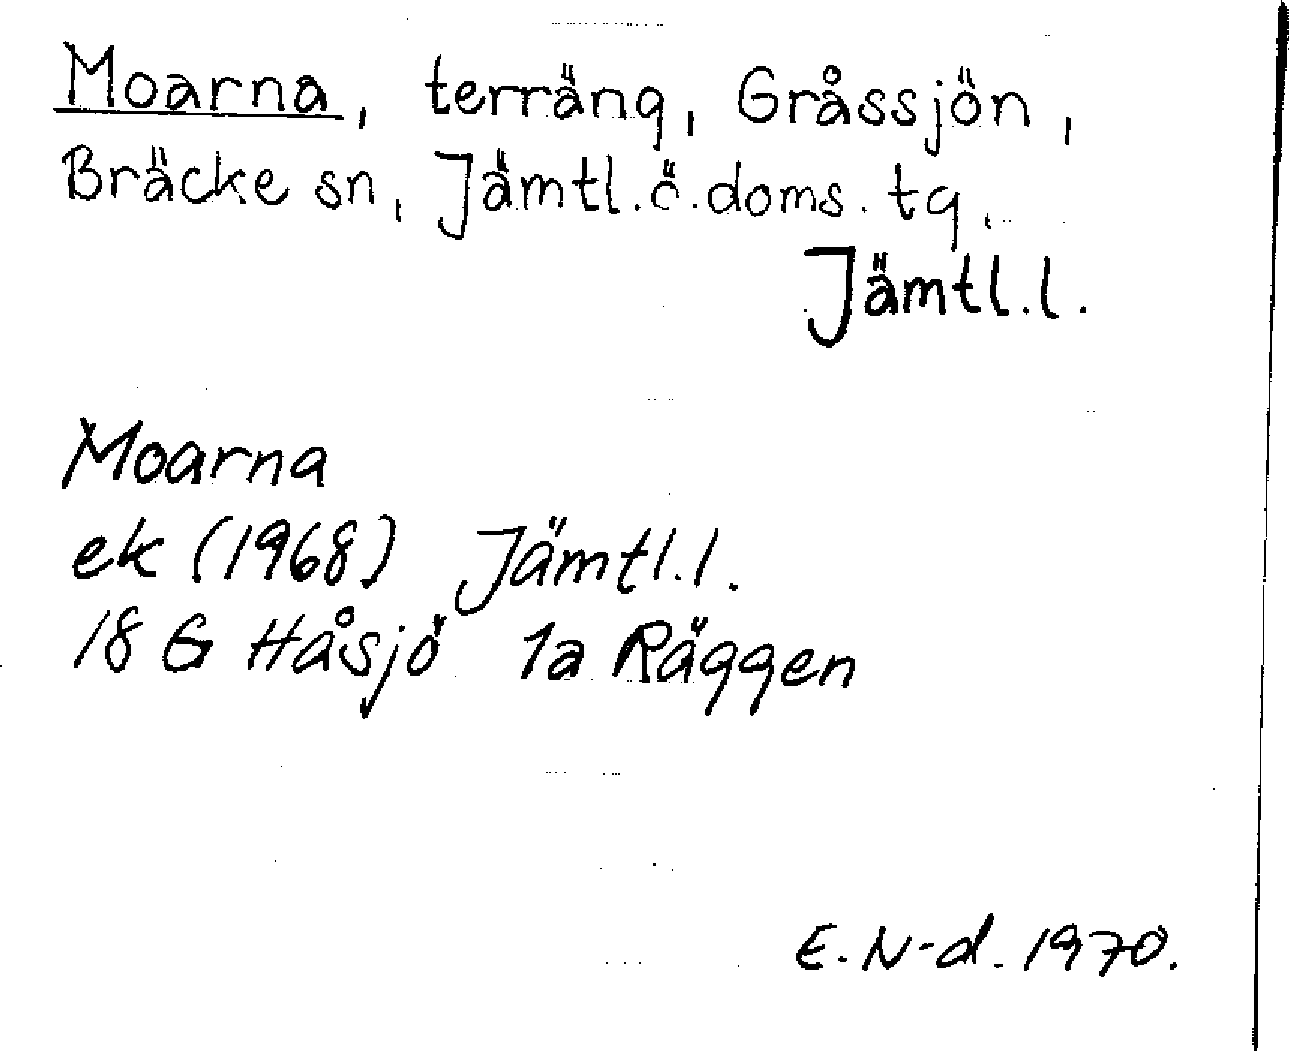 Moarna, terräng, Gråssjön,
Bräcke sn, Jämtl.ö.doms.tg.
Jämtl.l.
Moarna
ek (1968) Jämtl.l.
18 G Håsjö 1a Räggen
E.N-d. 1970.